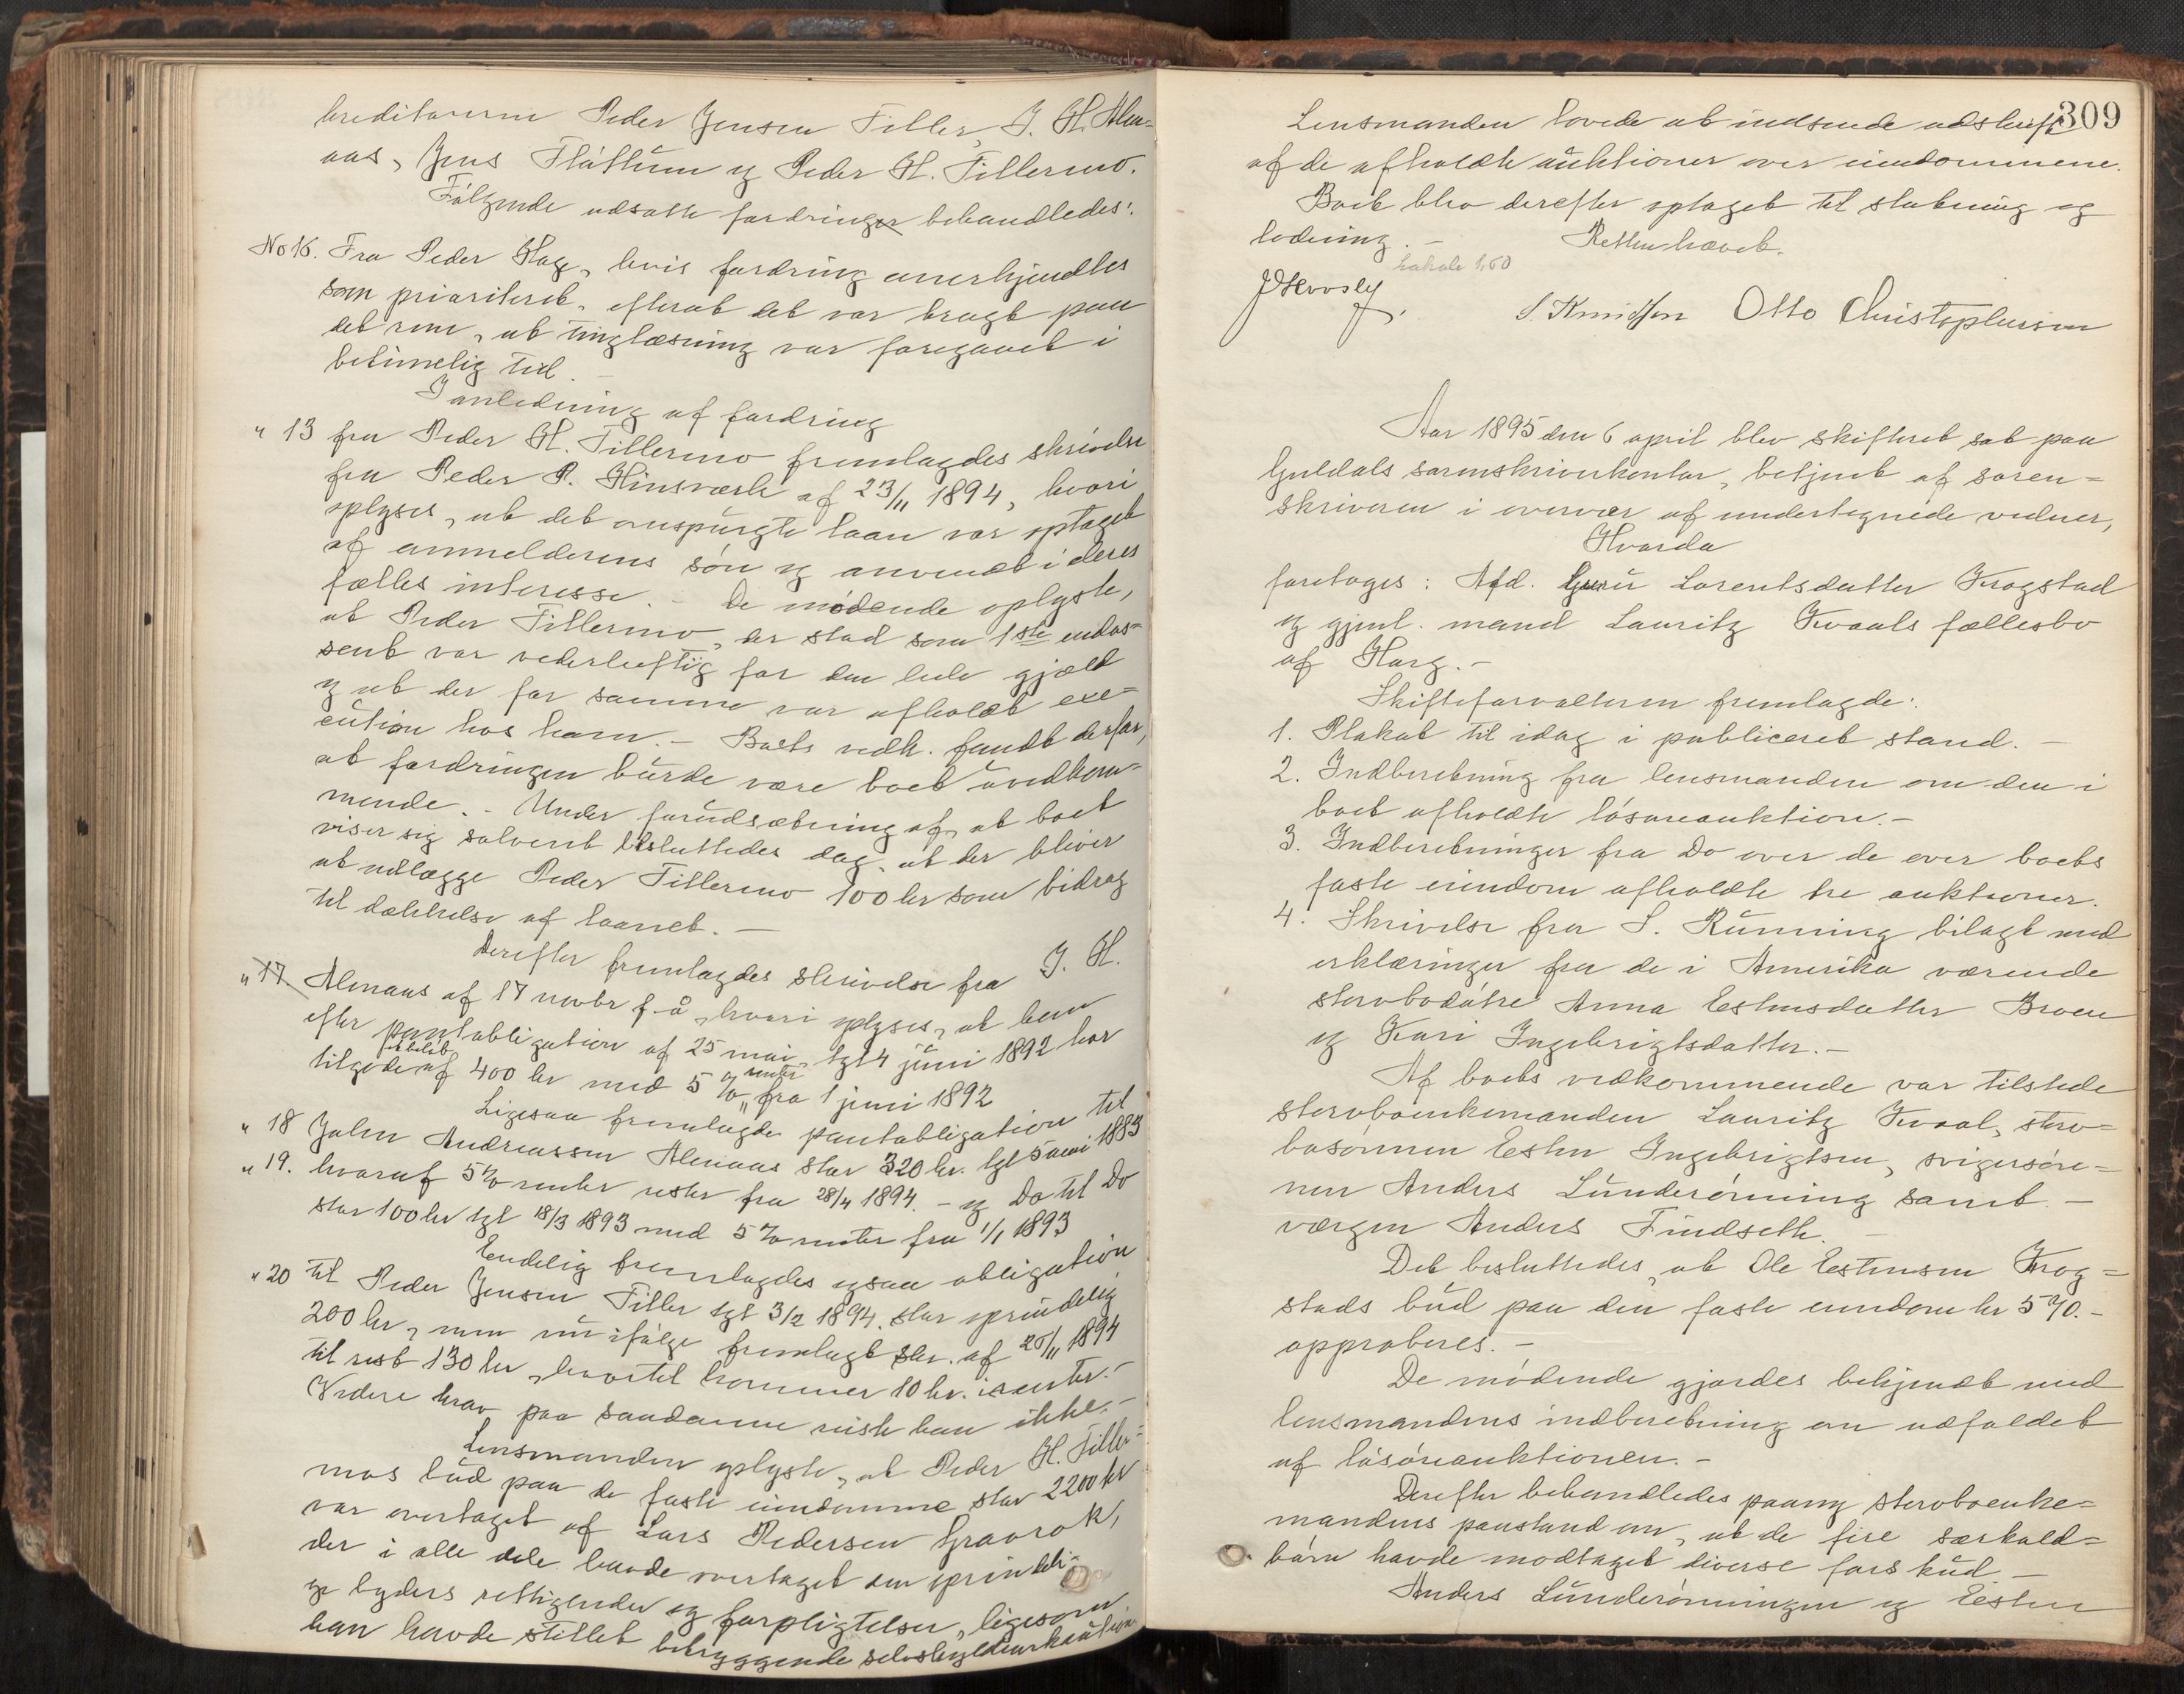 kreditorerne Peder Jensen Tiller, J. H. Alm=
aas, Jens Flåttum og Peder H. Tillermo.
Følgende udsatte fordringer behandledes:
No 16. Fra Peder Hage, hvis fordring anerkjendtes
som prioriteret, efterat det var bragt paa
det rene, at tinglæsning var foregaaet i
betimelig tid. –
I anledning af fordring
" 13 fra Peder H. Tillermo fremlagdes skrivelse
fra Peder P. Hinsværk af 23/11 1894, hvori
oplyses, at det omspurgte laan var optaget
af anmelderens søn og anvendt i deres
fælles interesse. – De mødende oplyste,
at Peder Tillermo, der stod som 1ste endos=
sent var vederheftig for den hele gjæld
og at der for samme var afholdt exe=
cution hos ham. – Boets vedk. fandt derfor,
at fordringen burde være boet uvedkom=
mende. – Under forudsætning af, at boet
viser sig solvent besluttedes dog, at der bliver
at udlægge Peder Tillermo 100 kr som bidrag
til dækkelse af laanet. –
Derefter fremlagdes skrivelse fra J. H.
" 17. Almaas af 17 novbr f. å., hvori oplyses, at han
efter pantobligation af 25 mai, tgl 4 juni 1892 har
tilgode et beløb af 400 kr med 5 % renter fra 1 juni 1892
Ligesaa fremlagdes pantobligation til
" 18 John Andreassen Almaas stor 320 kr. tgl 5 juni 1883
" 19. hvoraf 5 % renter rester fra 28/4 1894. – og Do til Do
stor 100 kr tgl 18/3 1893 med 5 % renter fra 1/1 1893
Endelig fremlagdes ogsaa obligation
" 20 til Peder Jensen Tiller tgl 3/2 1894, stor oprindelig
200 kr, men nu ifølge fremlagt skr. af 20/11 1894
til rest 130 kr, hvortil kommer 10 kr. i renter. –
Videre krav paa saadanne reiste han ikke. –
Lensmanden oplyste, at Peder H. Tiller=
mos bud paa de faste eiendomme stor 2200 kr
var overtaget af Lars Pedersen Graarok,
der i alle dele havde overtaget den oprindeli=
ge byders rettigheder og forpligtelser, ligesom
han havde stillet betryggende selvskyldnerkaution
309
Lensmanden lovede at indsende udskrift
af de afholdte auktioner over eiendommene.
Boet blev derefter optaget til slutning og
lodning. – Retten hævet.
Lokale 1,60
J Hovsly
S. Knudsen Otto Christophersen
Aar 1895 den 6 april blev skifteret sat paa
Guldals sorenskriverkontor, betjent af soren=
skriveren i overvær af undertegnede vidner,
Hvorda
foretoges: Afd. Guru Lorentsdatter Krogstad
og gjenl. mand Lauritz Kvaals fællesbo
af Horg. –
Skifteforvalteren fremlagde:
1. Plakat til idag i publiceret stand. –
2. Indberetning fra lensmanden om den i
boet afholdte løsøreauktion. –
3. Indberetninger fra Do over de over boets
faste eiendom afholdte tre auktioner.
4. Skrivelse fra S. Running bilagt med
erklæringer fra de i Amerika værende
stervbodøtre Anna Estensdatter Broen
og Kari Ingebrigtsdatter. –
Af boets vedkommende var tilstede
stervboenkemanden Lauritz Kvaal, sterv=
bosønnen Esten Ingebrigtsen, svigersøn=
nen Anders Lunderønning samt –
værgen Anders Findseth. –
Det besluttedes, at Ole Estensen Krog=
stads bud paa den faste eiendom kr 570. –
approberes. –
De mødende gjordes bekjendt med
lensmandens indberetning om udfaldet
af løsøreauktionen. –
Derefter behandledes paany stervboenke=
mandens paastand om, at de fire særkuld=
børn havde modtaget diverse forskud –
Anders Lunderønningen og Esten